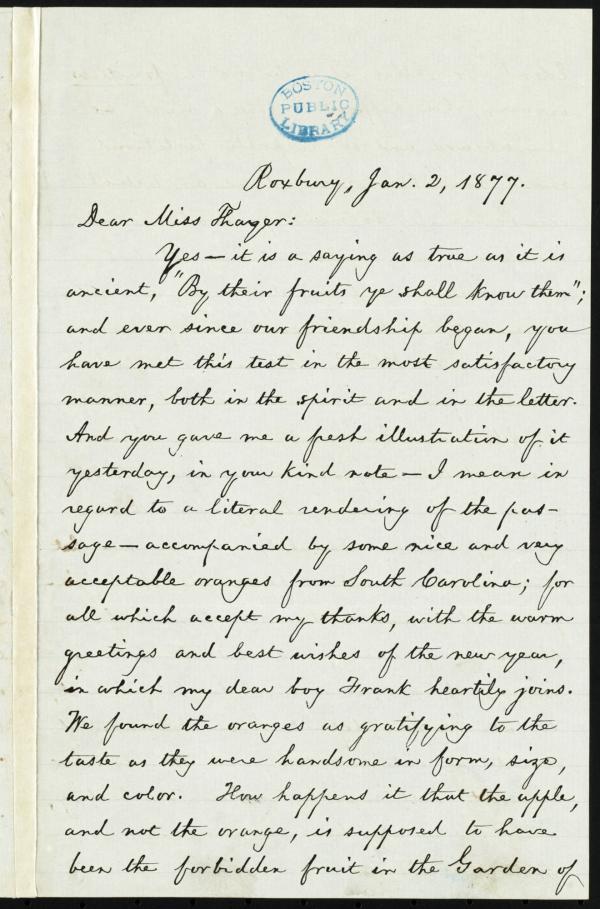 BOSTON
PUBLIC
LIBRARY
Roxbury, Jan. 2, 1877.
Dear Miss Thayer:
Yes — it is a saying as true as it is
ancient, "By their fruits ye shall know them";
and ever since our friendship began, you
have met this test in the most satisfactory
manner, both in the spirit and in the letter.
And you gave me a fresh illustration of it
yesterday, in your kind note — I mean in
regard to a literal rendering of the pas-
sage — accompanied by some nice and very
acceptable oranges from South Carolina; for
all which accept my thanks, with the warm
greetings and best wishes of the new year,
in which my dear boy Frank heartily joins.
We found the oranges as gratifying to the
taste as they were handsome in form, size,
and color. How happens it that the apple,
and not the orange, is supposed to have
been the forbidden fruit in the Garden of